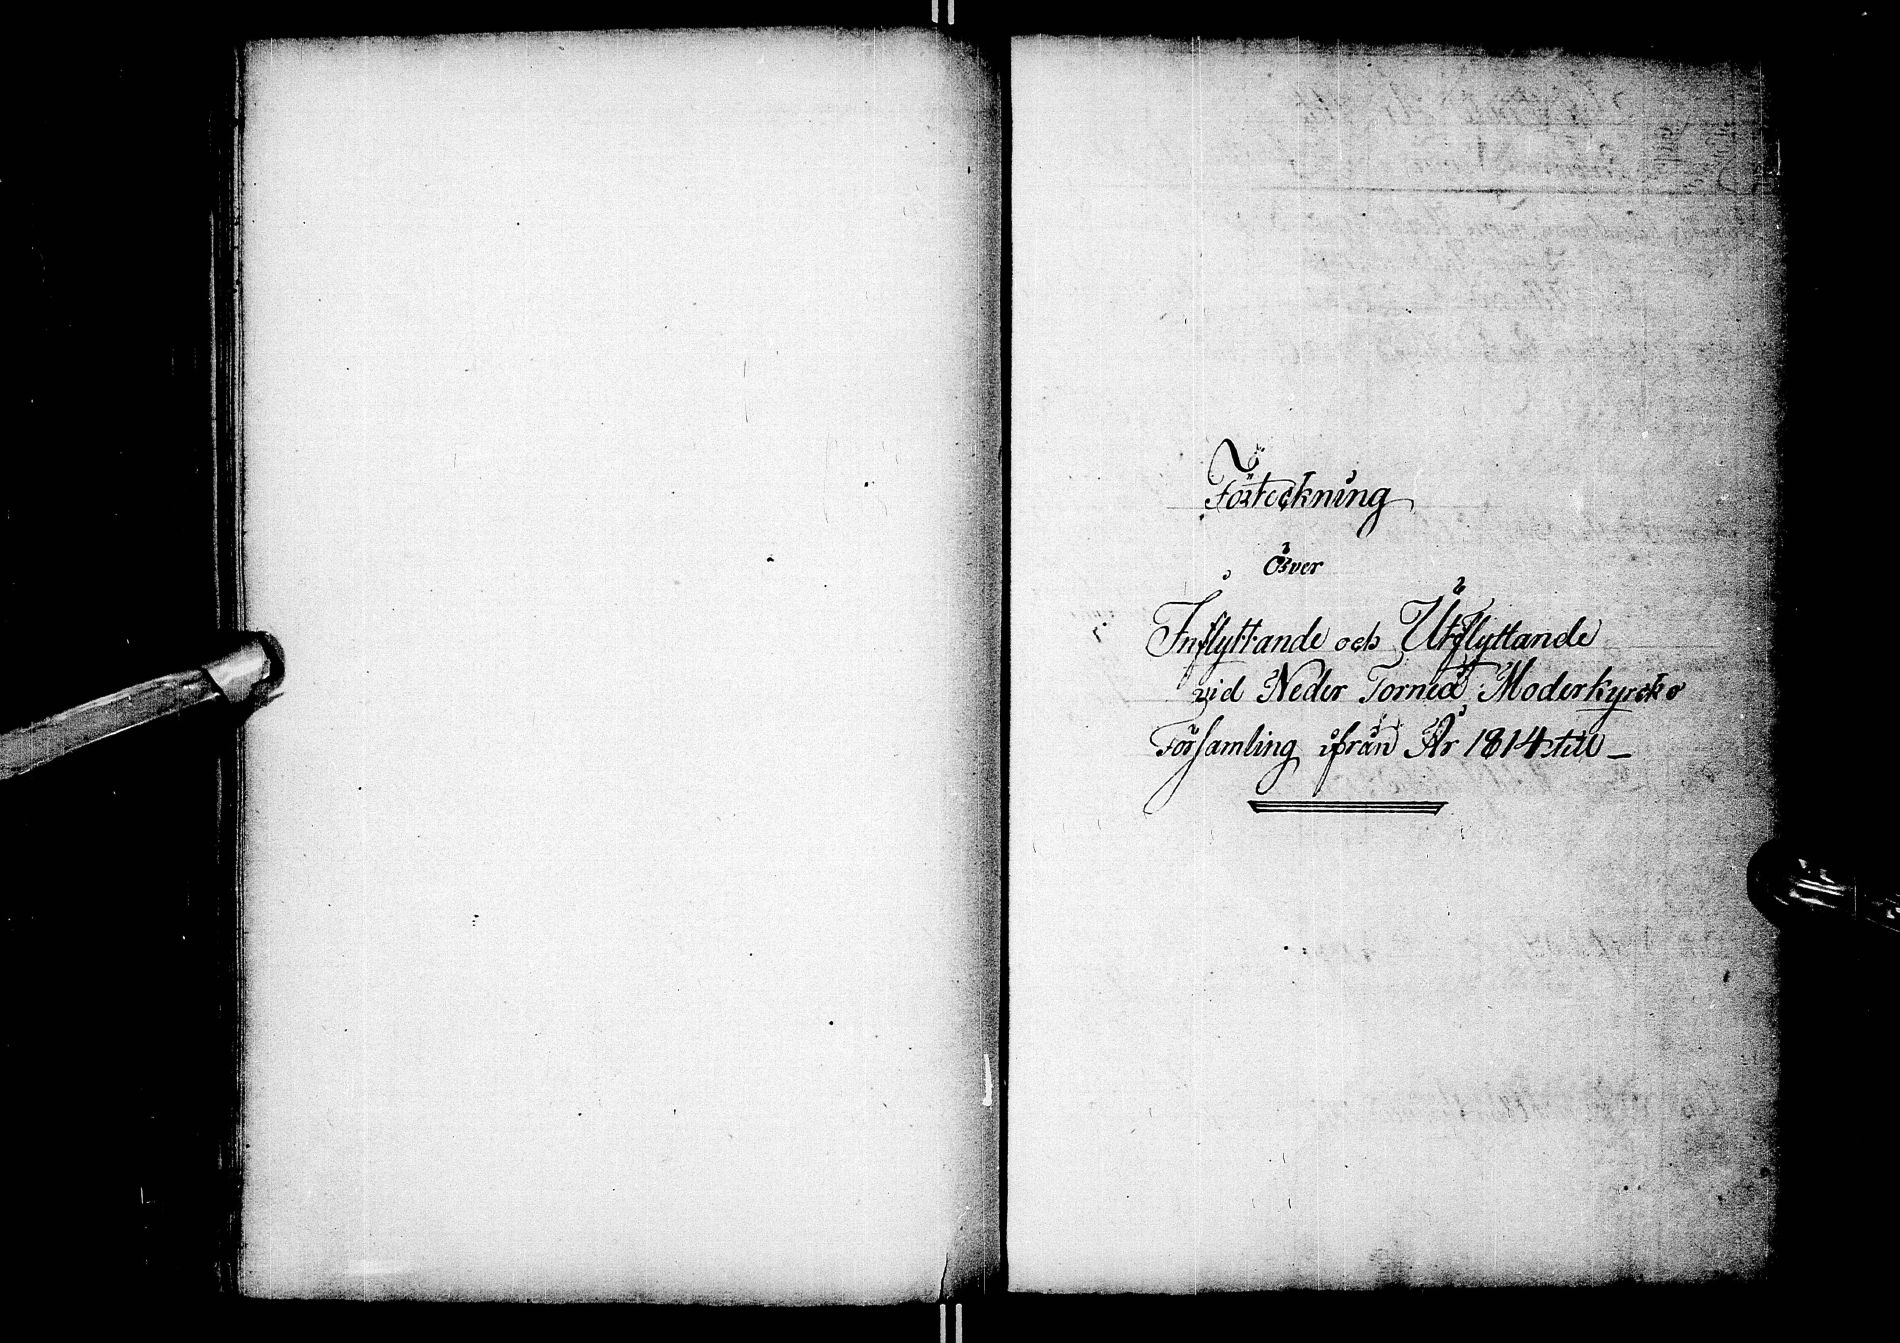 Förteckning
Öfver
Inflyttande och Utflyttande
vid Neder Torneå Moderkyrcko
Församling ifrån År 1814 till –